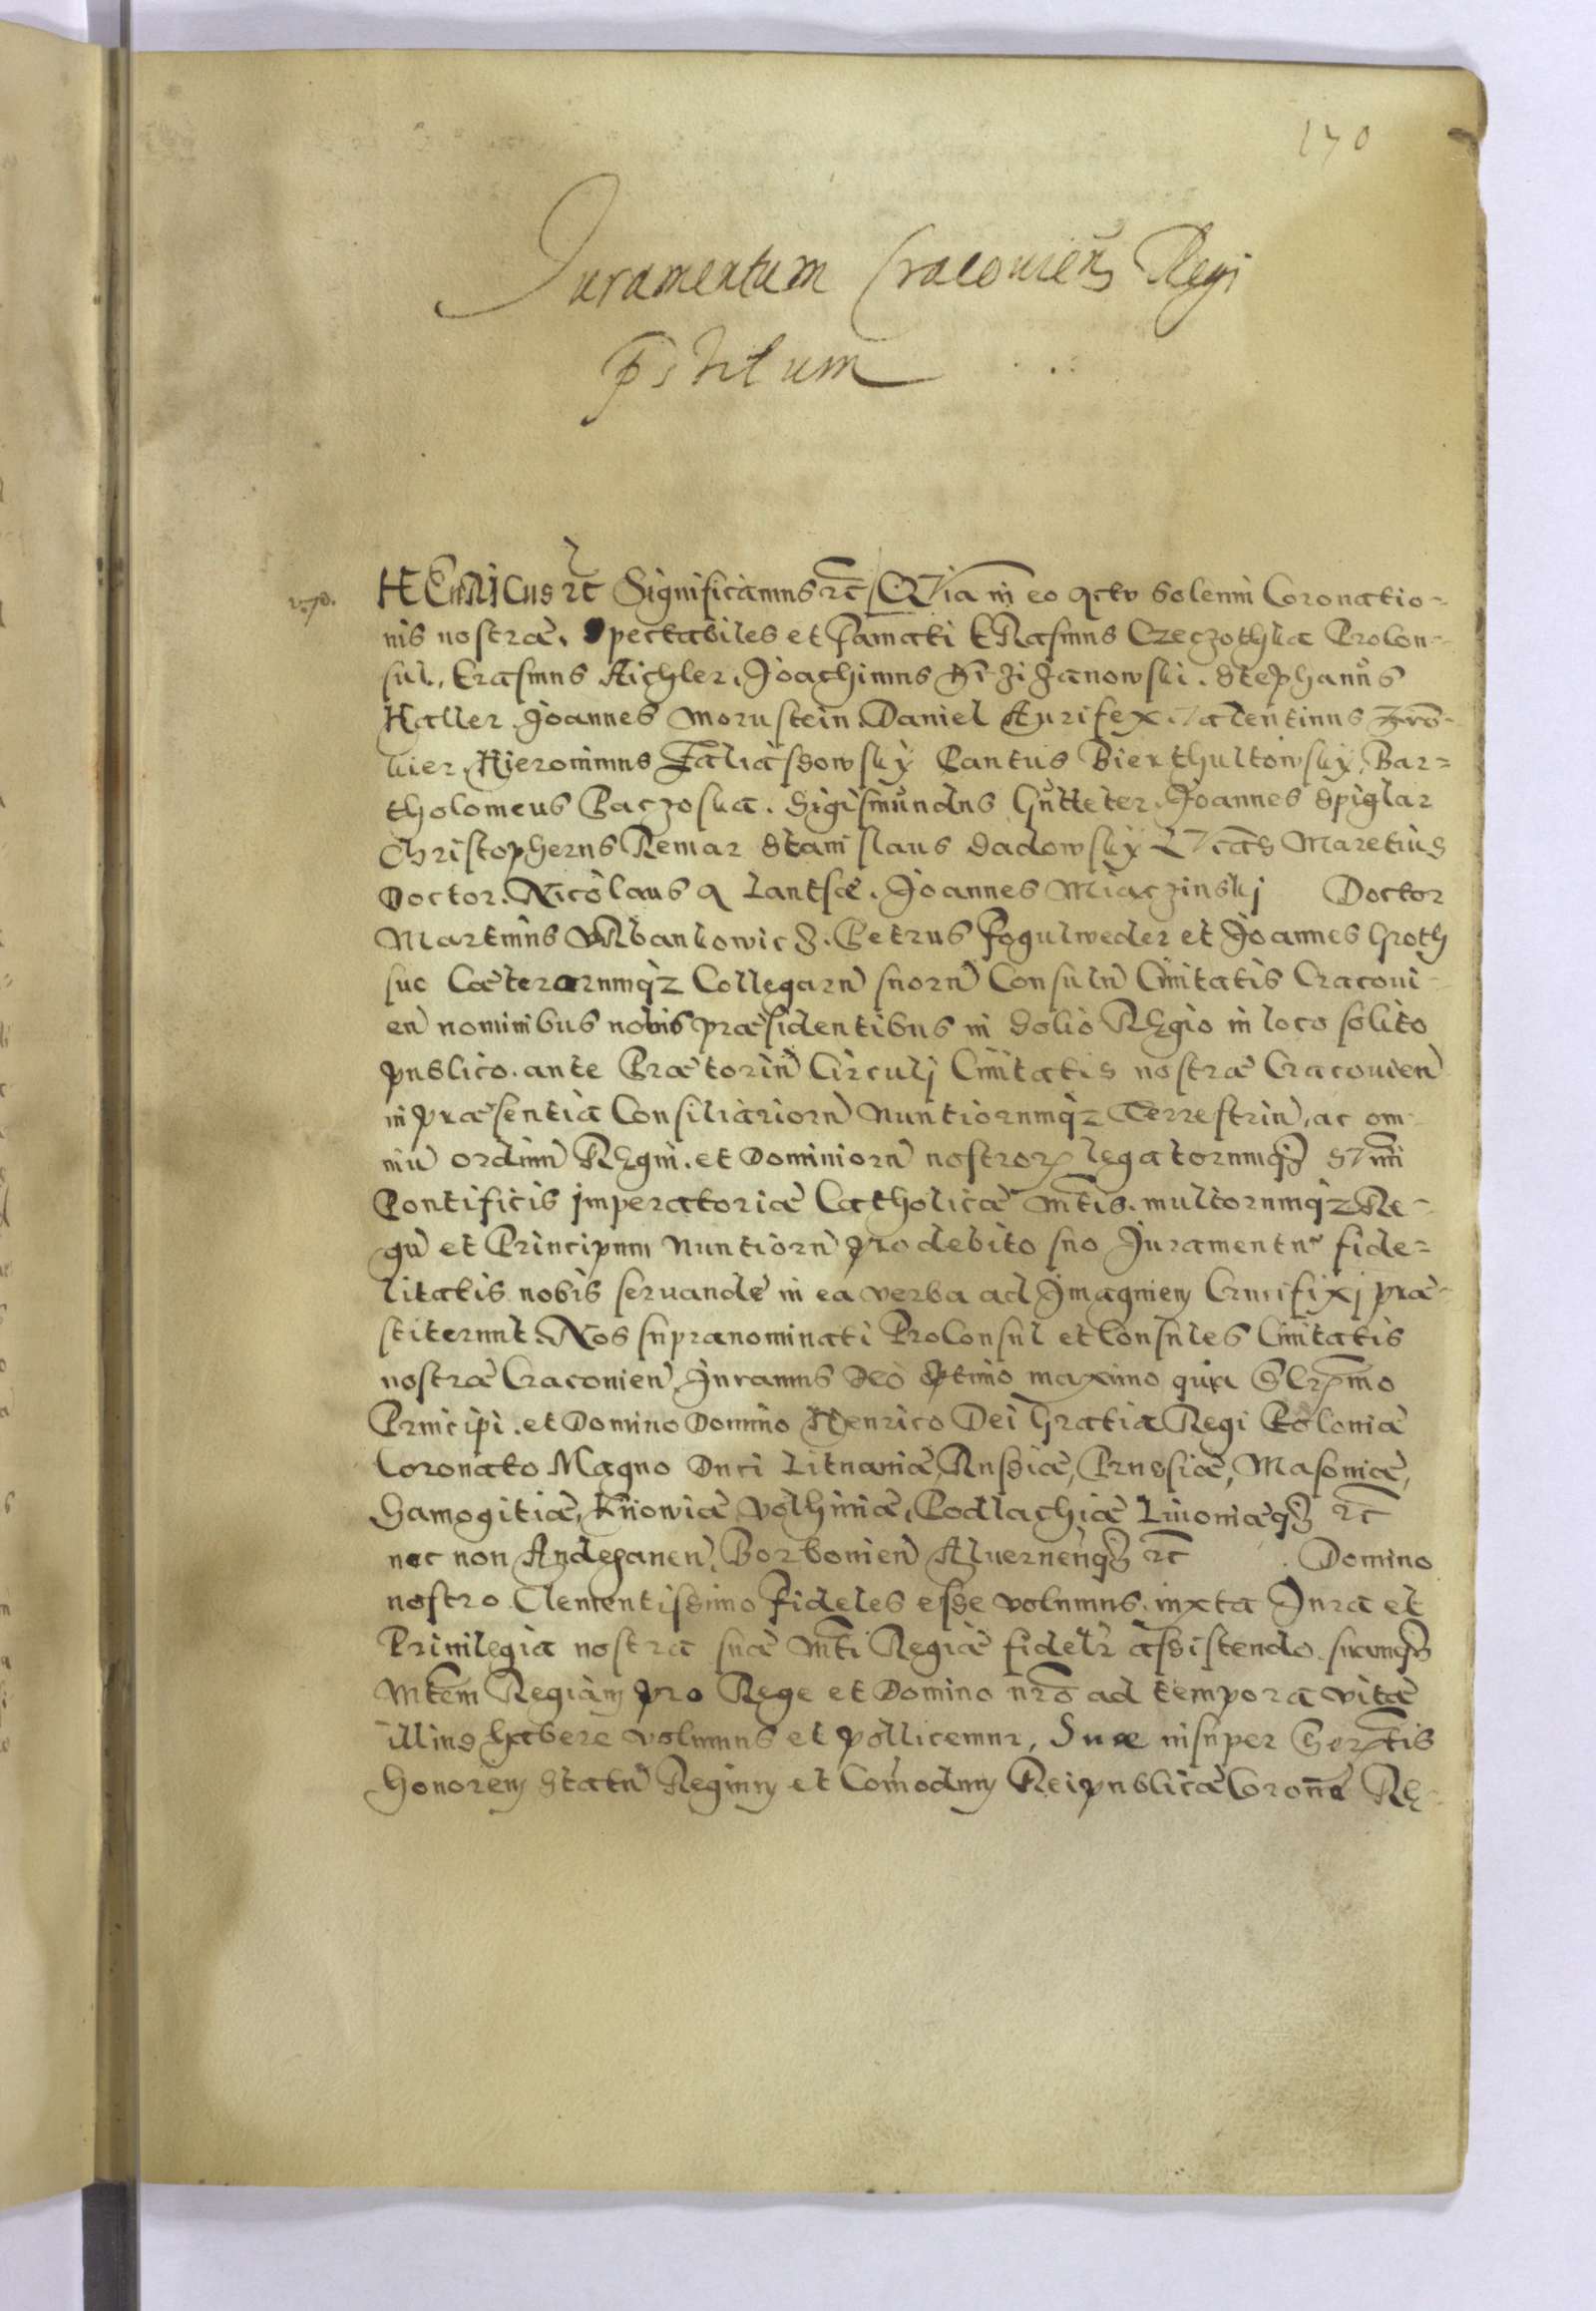 170
Juramentum Cracovien̄s Regi
p̄stitum
HENRICUS ꝛc̄ Significamus ꝛc̄ Quia in eo Actu Solenni Coronatio-
nis nostræ. Spectabiles et Famati ERasmus Czeczothka Procon-
sul, Erasmus Aichler, Joachimus Stephanus
Haller Joannes Morustein Daniel Aurifex Valentinus
Hieronimus Pantus Bar=
tholomeus Paczoska. Sigismundus Gutteter. Joannes Spiglar
Christopherus Remar Stanislaus Sadowsky Maretius
Doctor. Nicolaus a Lantsæ. Joannes Miaczinskj Doctor
Martinus VRbankowicz. Petrus Fogulweder et Joannes Groth
suo Cæterarumqz Collegarū suorū Consulū Ciuitatis Cracoui-
en̄ nominibus nobis præsidentibus in Solio REgio in loco solito
publico. ante Prætoriū Circulj Ciuitatis nostræ Cracouien̄
in præsentia Consiliariorū Nuntiorumqz Terrestriū, ac om-
niū ordinū REgni. et Dominiorū nostroꝝ legatorumqꝫ
Pontificis jmperatoriæ Catholicæ Mt̄is. multorumqz Re-
gū et Principum Nuntiorū pro debito suo Juramentū fide=
litatis nobis seruandæ in ea verba ad Jmaginem Crucifixj præ-
stiterunt. Nos supranominati ProConsul et Consules Ciuitatis
nostræ Cracouien̄ Juramus Deo Optimo maximo quia
Principi. et Domino Domino Henrico Dei Gratia Regi Poloniæ
Coronato Magno Duci Lituaniæ, Russiæ, Prussiæ, Masouiæ,
Samogitiæ, Kiiowiæ Volhiniæ, Podlachiæ Liuoniæqꝫ ꝛc̄
nec non Andegauen̄, Borbonien̄ Aluernen̄qꝫ ꝛc̄ . Domino
nostro Clementissimo Fideles esse volumus. iuxta Jura et
Priuilegia nostra suæ Mt̄i Regiæ fidelr̄ assistendo. suamqꝫ
Mtēm Regiam pro Rege et Domino nr̄o ad tempora vitæ
illius habere volumus et pollicemur, Suæ insuper
honorem Statū Regium et Com̄odum Reipublicæ Coronæ RE-